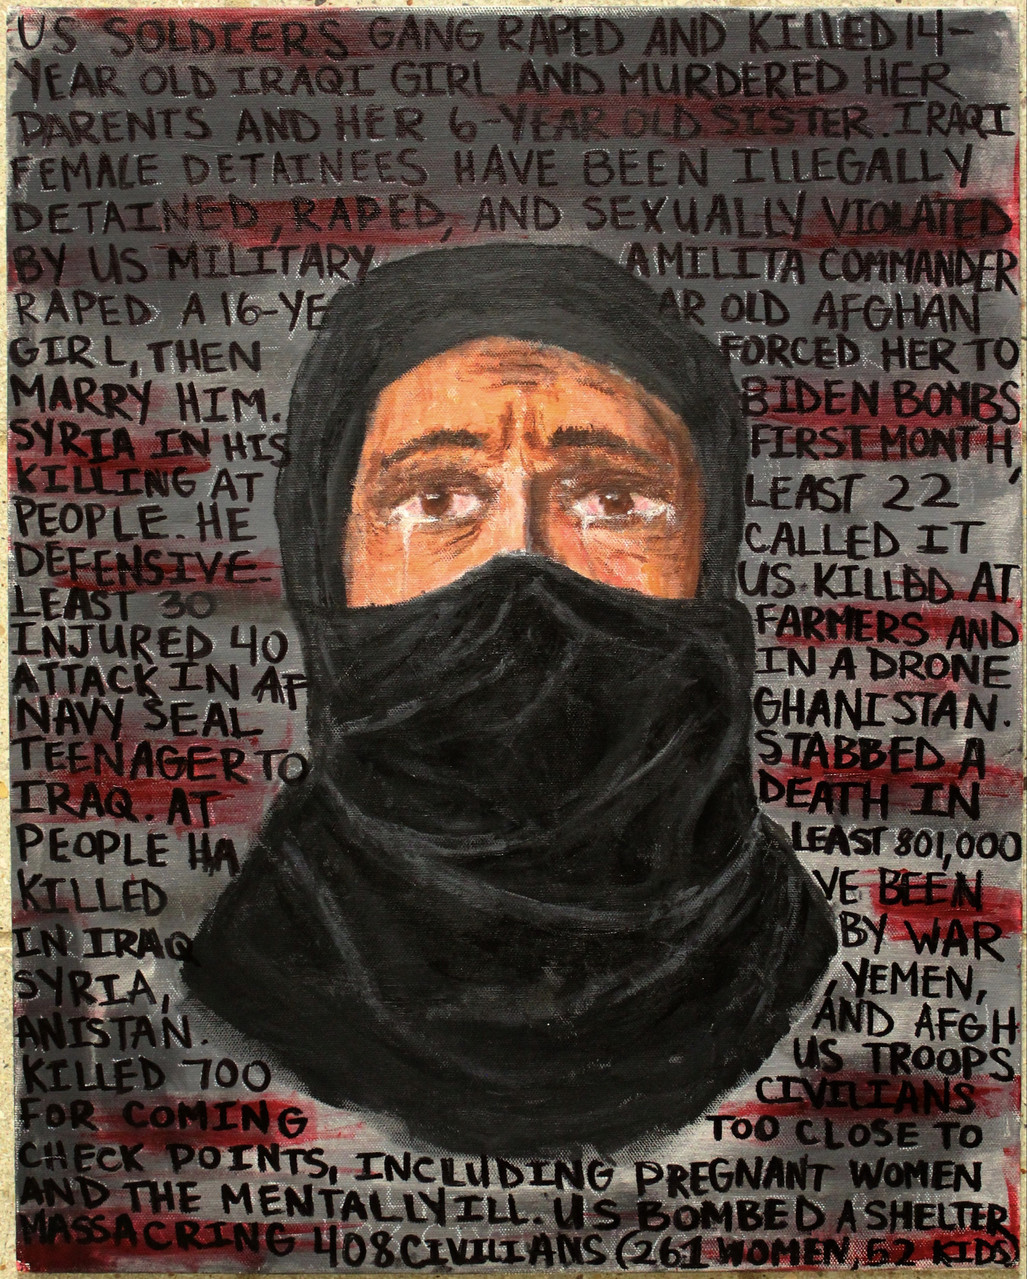 US SOLDIERS GANG RAPED AND KILLED 14-
YEAR OLD IRAQI GIRL AND MURDERED HER
PARENTS AND HER 6-YEAR OLD SISTER. IRAQI
FEMALE DETAINEES HAVE BEEN ILLEGALLY
DETAINED, RAPED, AND SEXUALLY VIOLATED
BY US MILITARY A MILITA COMMANDER
RAPED A 16-YE AR OLD AFGHAN
GIRL, THEN FORCED HER TO
MARRY HIM. BIDEN BOMBS
SYRIA IN HIS FIRST MONTH,
KILLING AT LEAST 22
PEOPLE. HE CALLED IT
DEFENSIVE. US KILLED AT
LEAST 30 FARMERS AND
INJURED 40 IN A DRONE
ATTACK IN AF GHANISTAN.
NAVY SEAL STABBED A
TEENAGER TO DEATH IN
IRAQ. AT LEAST 801,000
PEOPLE HA VE BEEN
KILLED BY WAR
IN IRAQ , YEMEN,
SYRIA, AND AFGH
ANISTAN. US TROOPS
KILLED 700 CIVILIANS
FOR COMING TOO CLOSE TO
CHECK POINTS, INCLUDING PREGNANT WOMEN
AND THE MENTALLY ILL. US BOMBED A SHELTER
MASSACRING 408 CIVILIANS (261 WOMEN, 52 KIDS)